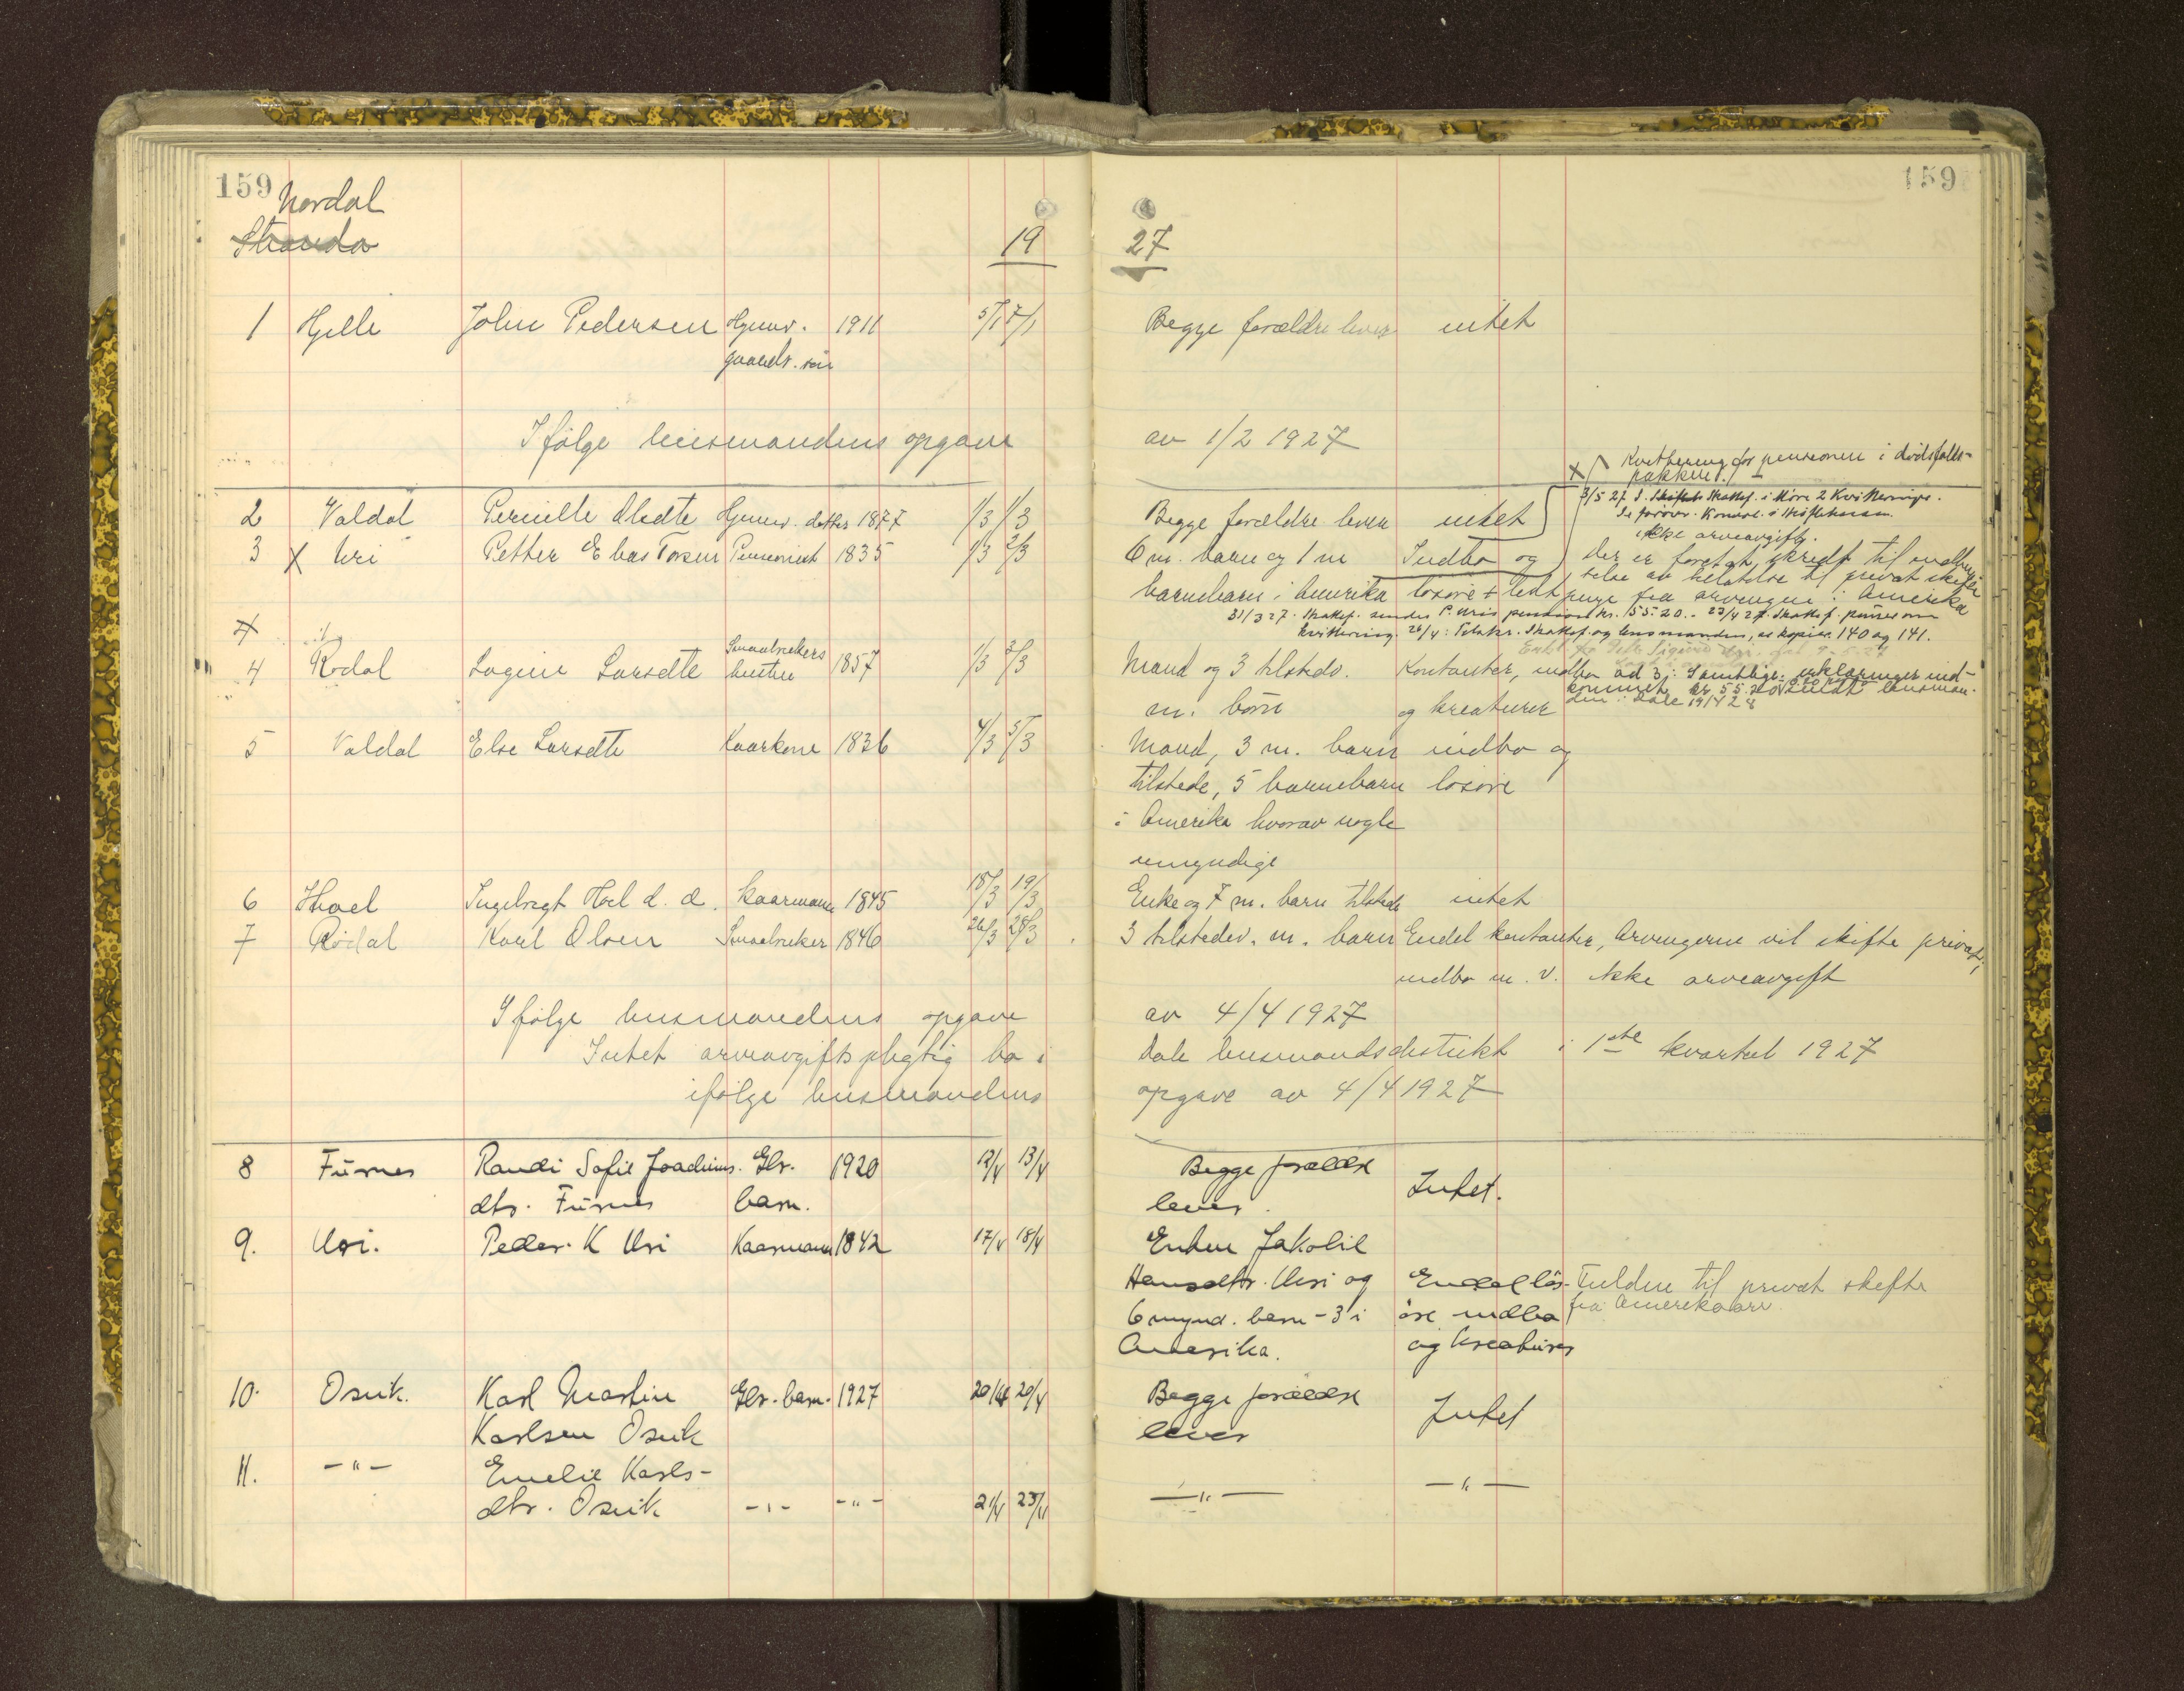 159
159
Nordal
Stranda
19 27
1 Hjelle John Pedersen Hjemv. 1911 5/1 7/1 Begge forældre lever intet
gaards. søn
Ifølge lensmandens opgave av 1/2 1927
x/ Kvittering for pensionen i dødsfalls-
pakken.
2 Valdal Pernille Oledtr Hjemv. datter 1877 1/3 1/3 Begge forældre lever intet
3/5 27 S. Skattef. i Møre 2 Kvitteringe.
ikke arveavgift.
3 x Uri Petter Elias Torsen Pensionist 1835 1/3 2/3 6 m. barn og 1 m Indbo og
der er foretat skridt til indhen-
telse av tilatelse til privat skifte
barnebarn i Amerika løsøre + litt penge fra arvingene i Amerika
31/3 27. Skattef. sender P. Uris pension kr. 55.20. - 23/4 27. Skattef. purrer om
kvittering. 26/4: Telskr. Skattef. og lensmanden, se kopier 140 og 141.
4 Rødal Lagine Larsdtr Smaabrukers 1857 1/3 2/3 Mand og 3 tilstedv. Kontanter, indbo
hustru
ad 3: Samtlige erklæringer ind-
kommet. kr 55.20 sendt lensman-
den i Dale 19/4 28
m. børn og kreaturer
5 Valdal Else Larsdtr Kaarkone 1836 4/3 5/3 Mand, 3 m. barn indbo og
tilstede, 5 barnebarn løsøre
i Amerika hvorav nogle
umyndige
6 Hoel Ingebregt Hoel d. æ. Kaarmann 1845 18/3 19/3 Enke og 7 m. barn tilstede intet
7 Rødal Karl Olsen Smaabruker 1846 26/3 28/3 3 tilstedev. m. barn Endel kontanter, Arvingerne vil skifte privat,
indbo m. v. ikke arveavgift
Ifølge lensmandens opgave av 4/4 1927
Intet arveavgiftspligtig bo i Dale lensmandsdistrikt i 1ste kvartal 1927
ifølge lensmandens opgave av 4/4 1927
8 Furnes Randi Sofie Joachims. Gbr. 1920 12/4 13/4 Begge forældre Intet.
dtr. Furnes barn. lever.
9. Uri. Peder K Uri Kaarmann 1842 17/4 18/4 Enken Jakobie
Hansdtr. Uri og Endel løs-
6 mynd. barn - 3 i øre indbo
Amerika. og kreaturer
Fuldm til privat skifte
fra Amerikaarv.
10. Osvik. Karl Martin Gbr. barn. 1927 20/4 20/4 Begge forældre Intet
Karlsen Osvik lever
11. -"- Emelie Karls-
dtr. Osvik -"- -"- 21/4 23/4 -"- -"-